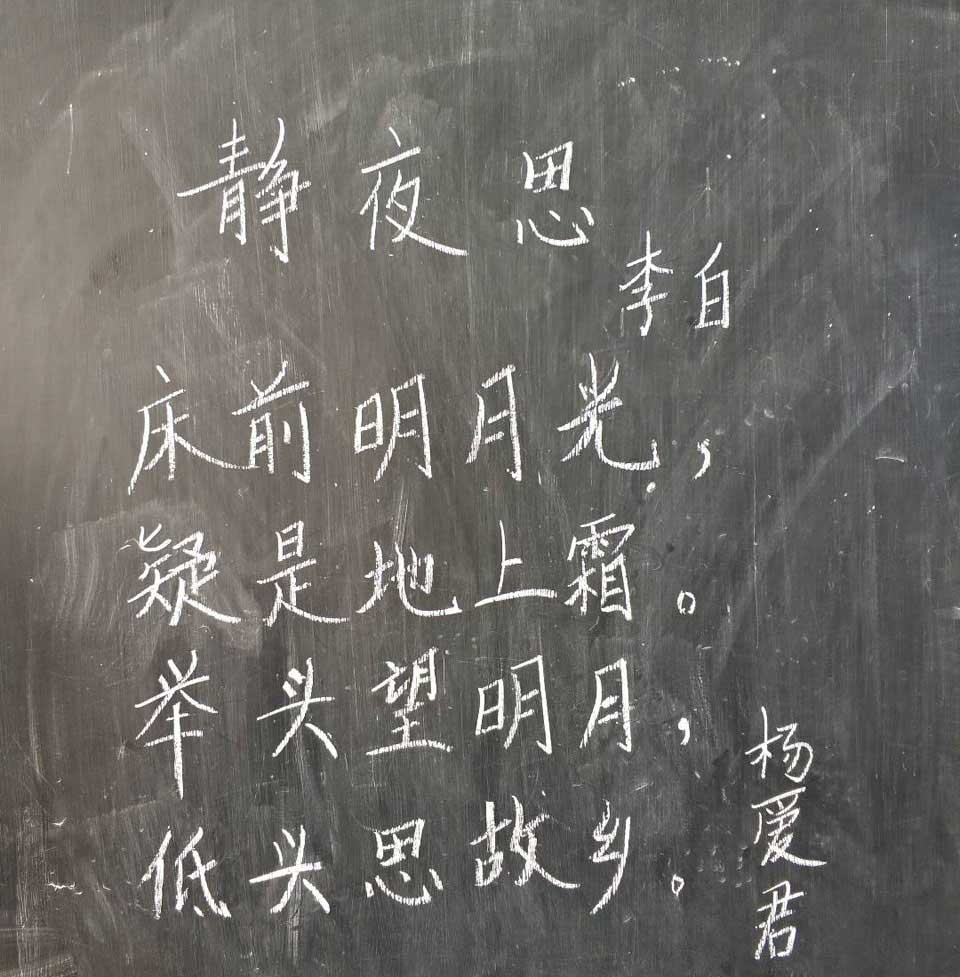 静夜思
李白
床前明月光，
疑是地上霜。
举头望明月，
低头思故乡。
杨爱君